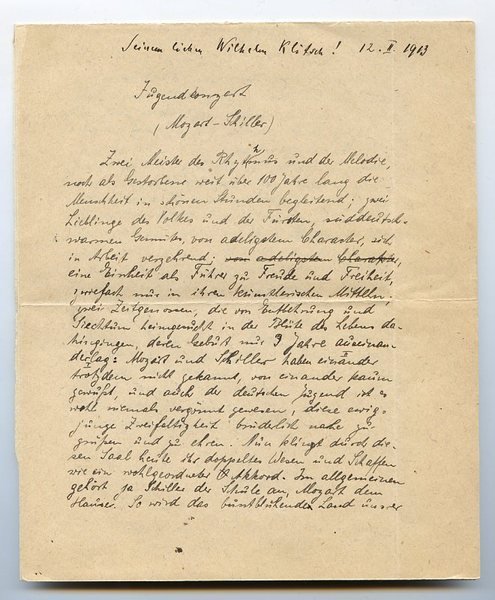 Seinem lieben Wilhelm Klitsch! 12. II. 1913
Jugendkonzert
(Mozart-Schiller)
Zwei Meister des Rhythmus und der Melodie,
noch als Gestorbene weit über 100 Jahre lang die
Menschheit in schönen Stunden begleitend; zwei
Lieblinge des Volkes und der Fürsten, süddeutsch-
warmen Gemütes, von adeligstem Charakter, sich
in Arbeit verzehrend; von adeligstem Charakter,
eine Einheit als Führer zu Freude und Freiheit,
zweifach nur in ihren künstlerischen Mitteln;
zwei Zeitgenossen, die von Entbehrung und
Siechtum heimgesucht in der Blüte des Lebens da-
hingingen, deren Geburt nur 3 Jahre auseinan-
derlag: Mozart und Schiller haben einander
trotzdem nicht gekannt, von einander kaum
gewußt, und auch der deutschen Jugend ist es
wohl niemals vergönnt gewesen, diese ewig-
junge Zweifaltigkeit brüderlich nahe zu
grüßen und zu ehren. Nun klingt durch die-
sen Saal heute ihr doppeltes Wesen und Schaffen
wie ein wohlgeordneter Akkord. Im allgemeinen
gehört ja Schiller der Schule an, Mozart dem
Hause. So wird das buntblühende Land unsrer